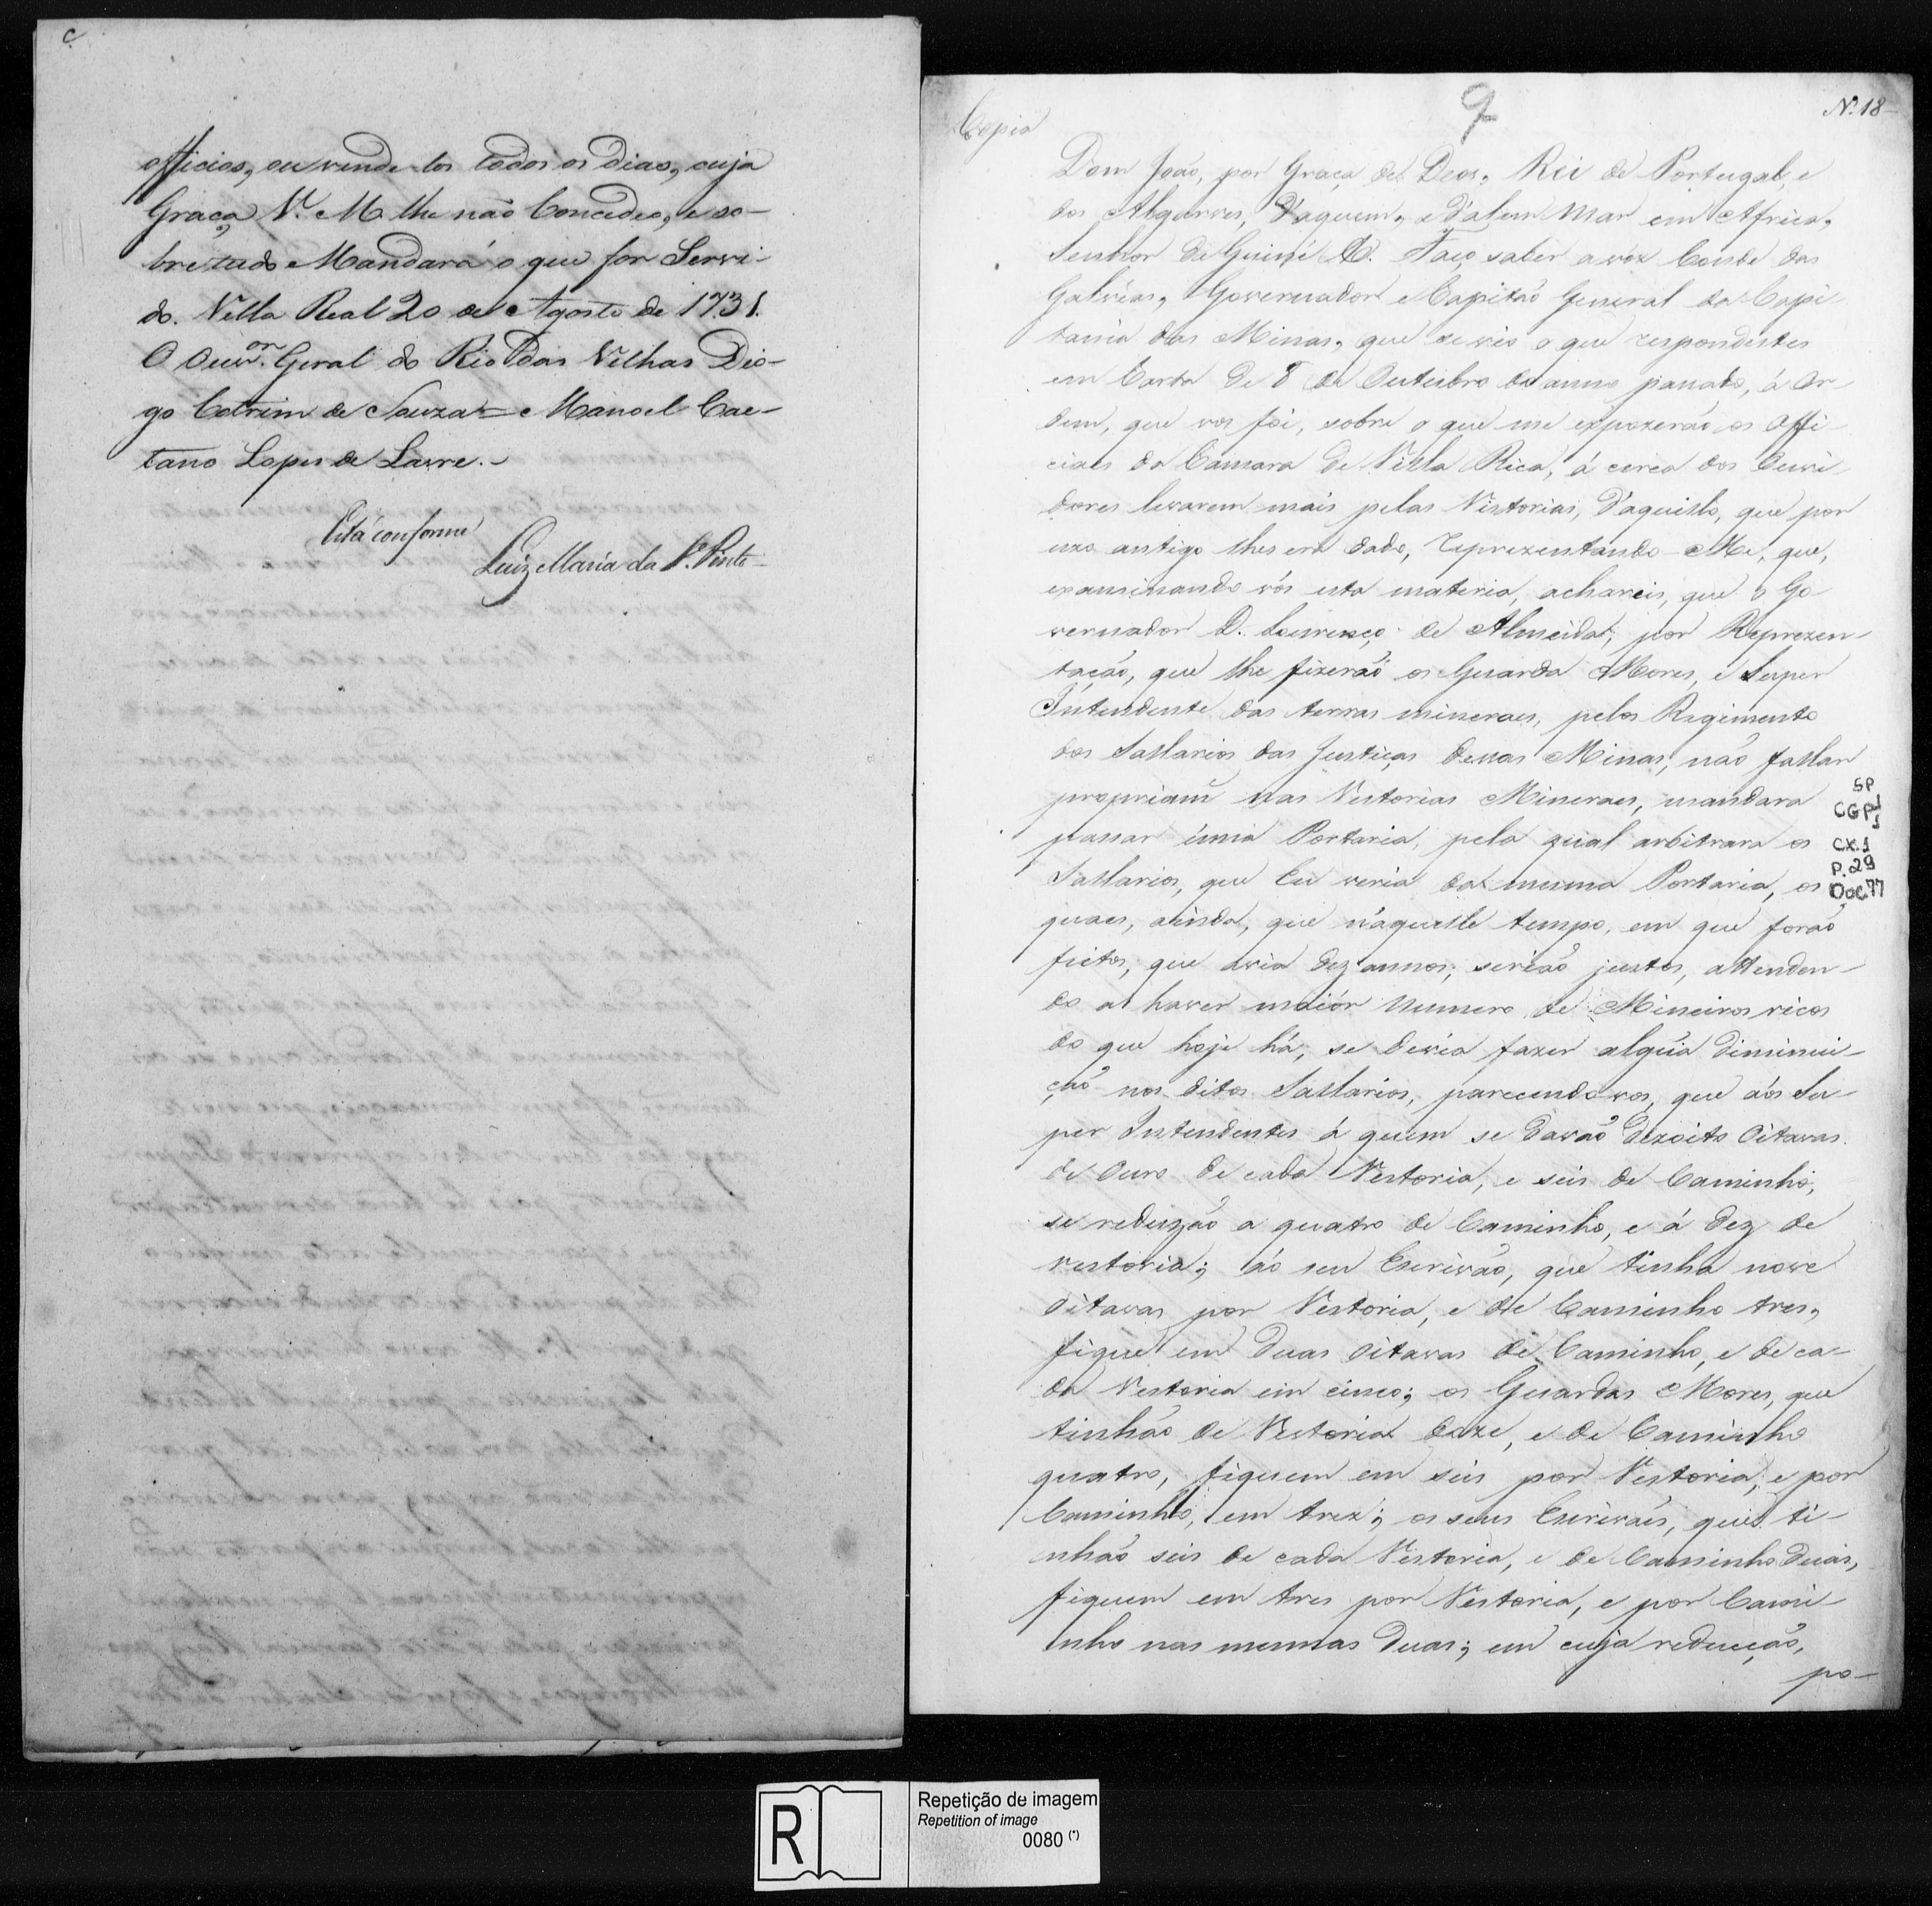 C
officios, ou vende-los todos os dias, cuja
Graça V. M. lhe não Concedeo, e so-
bretudo Mandará o que for Servi-
do. Villa Real 20 de Agosto de 1731.
O Ouv.or Geral do Rio das Velhas Dio-
go Cotrim de Souza = Manoel Cae-
tano Lopes de Lavre. -
Está conforme
Luiz Maria da S.ª Pinto
Copia
9
N.º 18
Dom João, por Graça de Deos, Rei de Portugal, e
dos Algarves, d'aquem, e d'alem Mar em Africa,
Senhor de Guiné &. Faço saber a vós Conde das
Galvêas, Governador e Capitão General da Capi
tania das Minas, que se vio o que respondestes
em Carta de 8 de Outubro do anno passado, á Or-
dem, que vos foi, sobre o que me expozerão os Offi
ciaes da Camara de Villa Rica, á cerca dos Ouvi
dores levarem mais pelas Vistorias, d'aquillo, que por
uzo antigo lhes era dado, Reprezentando-Me, que,
examinando vós esta materia, achareis, que o Go
vernador D. Lourenço de Almeida, por Reprezen-
tação, que lhe fizerão os Guarda Mores, e Super
Intendente das terras mineraes, pelos Regimento
dos Sallarios das Justiças dessas Minas, não fallar
propriam.e nas Vestorias Mineraes, mandara
passar huma Portaria, pela qual arbitrara os
Sallarios, que Eu veria da mesma Portaria, os
quaes, ainda, que n'aquelle tempo, em que forão
feitos, que avia dez annos, serião justos, attenden-
do a haver maiór numero de Mineiros ricos
do que hoje há, se devia fazer algũa diminui-
ção nos ditos Sallarios, parecendo vos, que aós Su-
per Intendentes á quem se davão dezoito Oitavas
de Ouro de cada Vestoria, e seis de Caminho,
se reduzão a quatro de Caminho, e á dez de
vestoria; áo seu Escrivão, que tinha nove
oitavas por Vestoria, e de Caminho tres,
fique em duas oitavas de Caminho, e de ca-
da Vestoria em cinco; os Guardas Mores, que
tinhão de Vestoria doze, e de Caminho
quatro, fiquem em seis por Vestoria, e por
Caminho, em trez; os seus Escrivães, que ti-
nhão seis de cada Vestoria, e de Caminho duas,
fiquem em tres por Vestoria, e por Cami
nho nas mesmas duas; em cuja reducção,
po-
SP
CGP 1
1
CX.1
P.29
Doc 77
R
Repetição de imagem
Repetition of image
0080 (*)